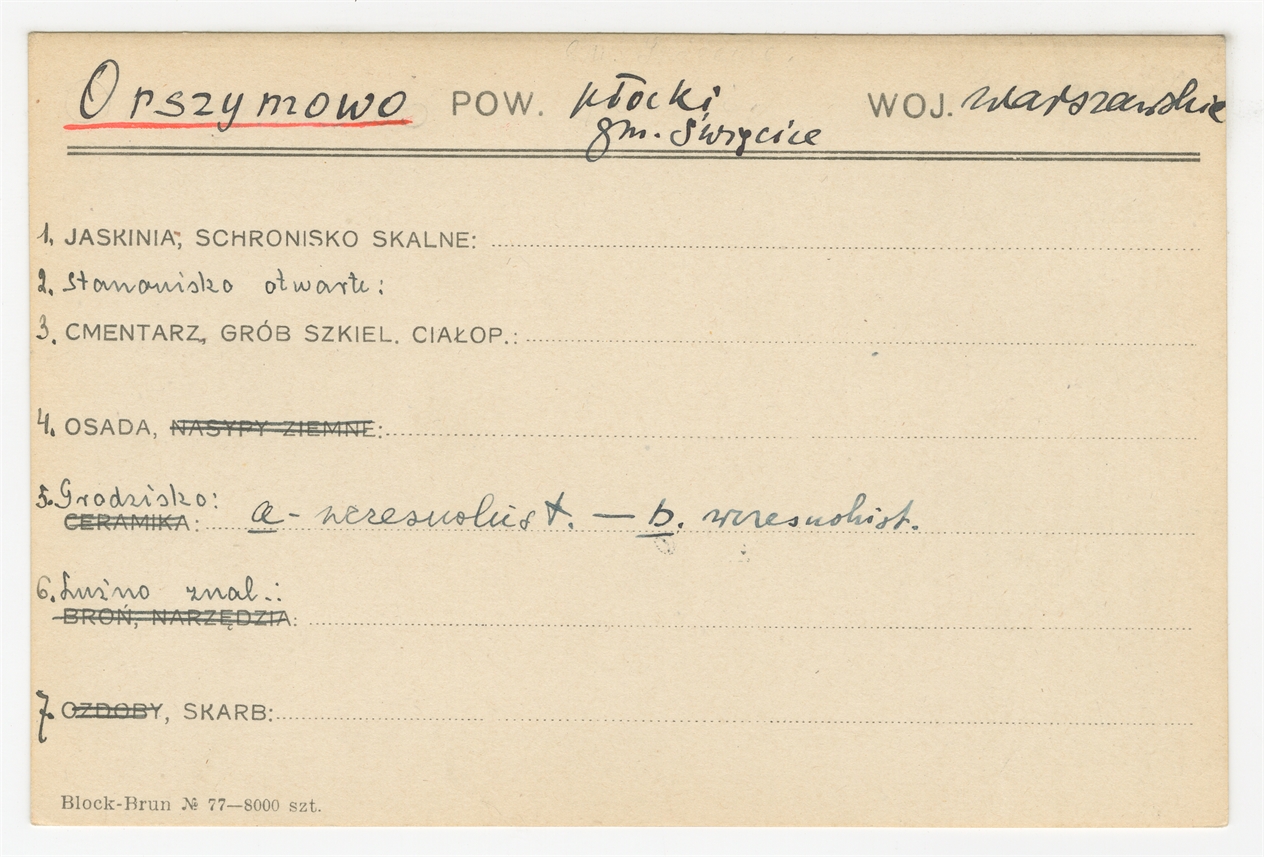 Orszymowo POW. płocki WOJ. warszawskie
gm. Święcice
1. JASKINIA, SCHRONISKO SKALNE:
2. Stanowisko otwarte:
3. CMENTARZ, GRÓB SZKIEL. CIAŁOP.:
4. OSADA, NASYPY ZIEMNE:
5. Grodzisko:
CERAMIKA: a - wczesnohist. — b. wczesnohist.
6. Luźno znal.:
BROŃ, NARZĘDZIA:
7. OZDOBY, SKARB:
Block-Brun № 77—8000 szt.